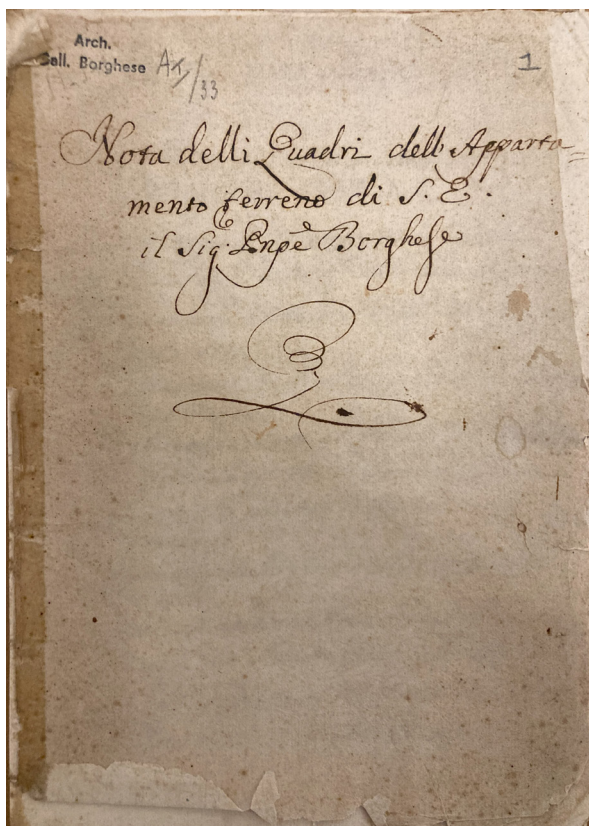 Arch.
Gall. Borghese AI/33
1
Nota delli Quadri dell Apparta=
mento terreno di S. E.
il Sig. Pnpe Borghese